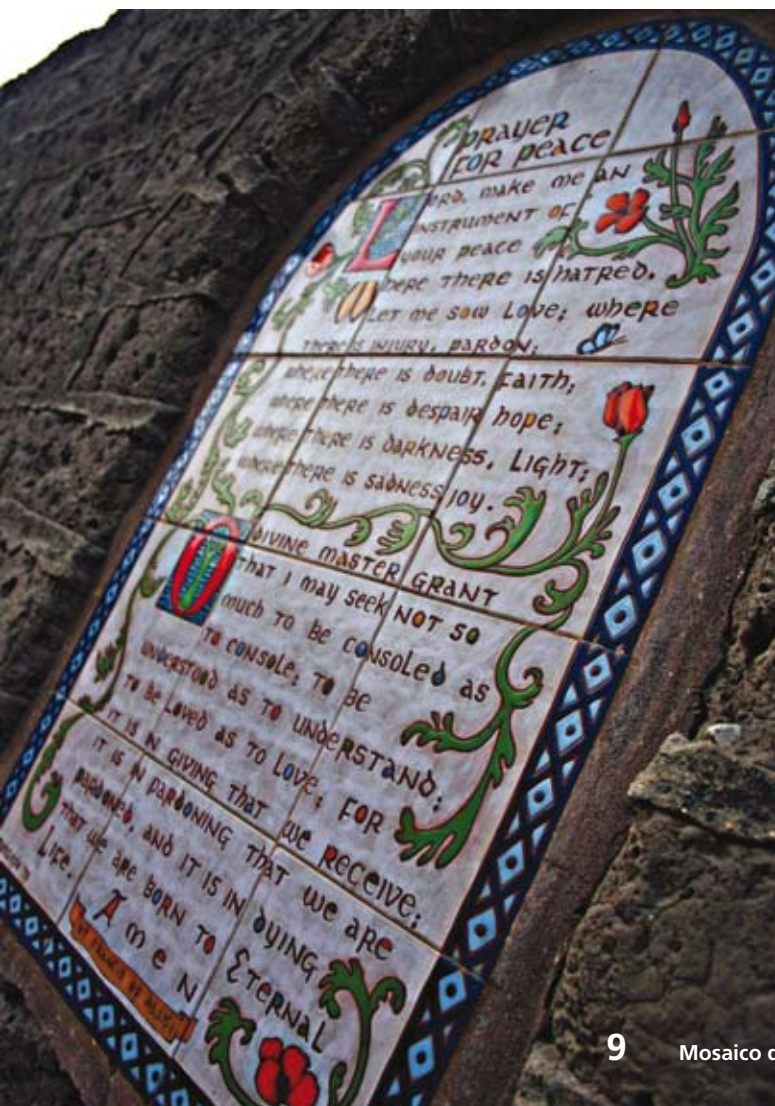 PRAYER
FOR PEACE
LORD, MAKE ME AN
INSTRUMENT OF
YOUR PEACE
WHERE THERE IS HATRED,
LET ME SOW LOVE; WHERE
THERE IS INJURY, PARDON;
WHERE THERE IS DOUBT, FAITH;
WHERE THERE IS DESPAIR HOPE;
WHERE THERE IS DARKNESS, LIGHT;
WHERE THERE IS SADNESS JOY.
O DIVINE MASTER GRANT
THAT I MAY SEEK NOT SO
MUCH TO BE CONSOLED AS
TO CONSOLE; TO BE
UNDERSTOOD AS TO UNDERSTAND;
TO BE LOVED AS TO LOVE; FOR
IT IS IN GIVING THAT WE RECEIVE;
IT IS IN PARDONING THAT WE ARE
PARDONED, AND IT IS IN DYING
THAT WE ARE BORN TO ETERNAL
LIFE.
AMEN
ST FRANCIS OF ASSISI
9 Mosaico